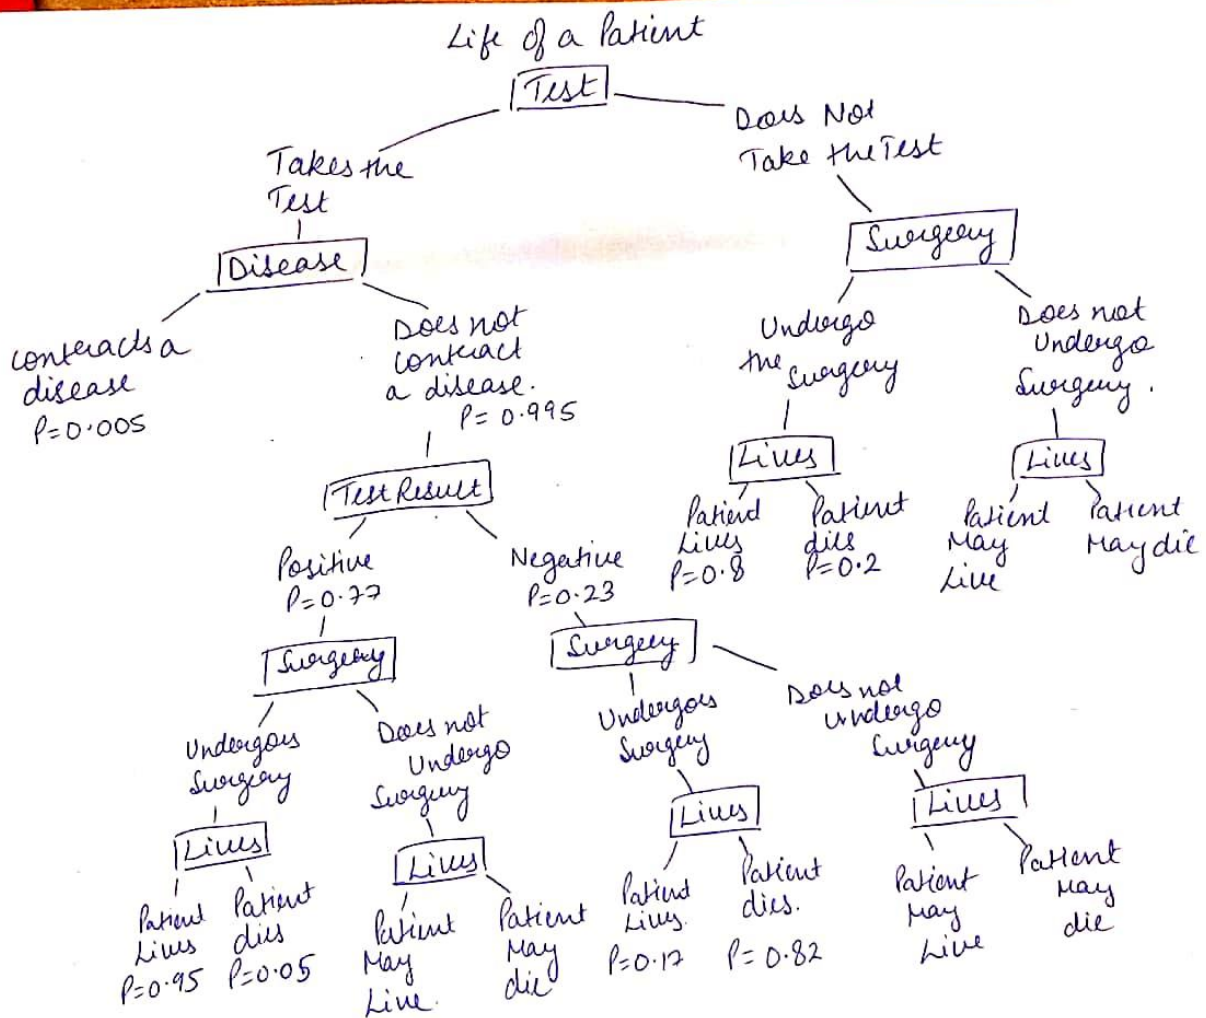 Life of a Patient
Test
Takes the
Test
Does Not
Take the Test
Disease
Surgery
contracts a
disease
P=0.005
Does not
contract
a disease.
P=0.995
Undergo
the surgery
Does not
Undergo
Surgery.
Test Result
Lives
Lives
Positive
P=0.77
Negative
P=0.23
Patient
Lives
P=0.8
Patient
dies
P=0.2
Patient
May
Live
Patient
May die
Surgery
Surgery
Undergoes
Surgery
Does not
Undergo
Surgery
Undergoes
Surgery
Does not
undergo
Surgery
Lives
Lives
Lives
Lives
Patient
Lives
P=0.95
Patient
dies
P=0.05
Patient
May
Live.
Patient
May
die
Patient
Lives.
P=0.17
Patient
dies.
P=0.82
Patient
May
Live
Patient
May
die